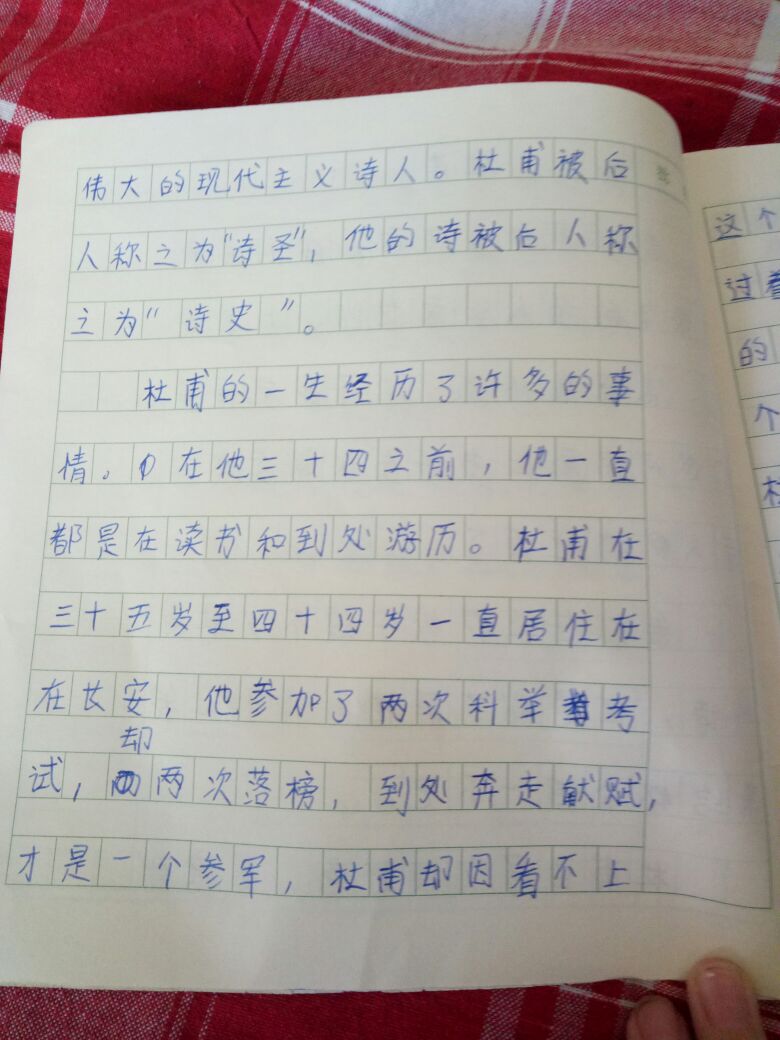 伟大的现代主义诗人。杜甫被后
人称之为“诗圣”，他的诗被后人称
之为“诗史”。
杜甫的一生经历了许多的事
情。在他三十四之前，他一直
都是在读书和到处游历。杜甫在
三十五岁至四十四岁一直居住在
在长安，他参加了两次科举考
试，却两次落榜，到处奔走献赋，
才是一个参军，杜甫却因看不上
这个
过着
的
个